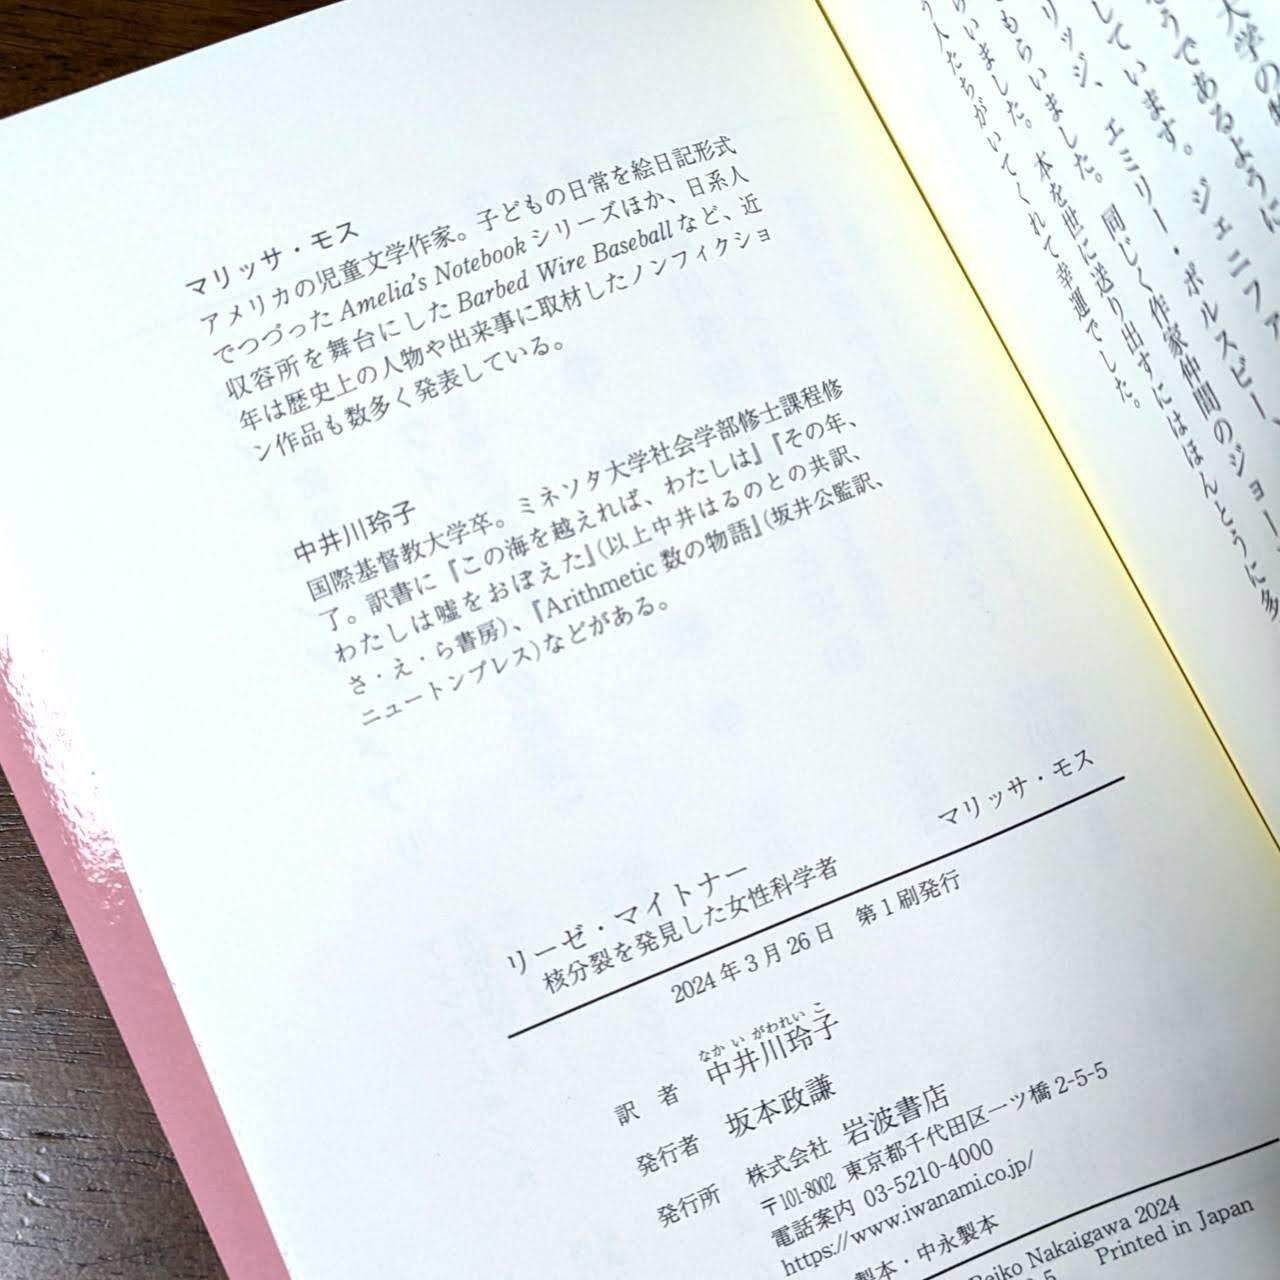 大学の
うであるように
しています。ジェニファ
リッジ、エミリー・ボルスビー、
もらいました。同じく作家仲間のジョー
いました。本を世に送り出すにはほんとうに多
う人たちがいてくれて幸運でした。
マリッサ・モス
アメリカの児童文学作家。子どもの日常を絵日記形式
でつづった Amelia's Notebook シリーズほか、日系人
収容所を舞台にした Barbed Wire Baseball など、近
年は歴史上の人物や出来事に取材したノンフィクショ
ン作品も数多く発表している。
中井川玲子
国際基督教大学卒。ミネソタ大学社会学部修士課程修
了。訳書に『この海を越えれば、わたしは』『その年、
わたしは嘘をおぼえた』(以上中井はるのとの共訳、
さ・え・ら書房)、『Arithmetic 数の物語』(坂井公監訳、
ニュートンプレス)などがある。
リーゼ・マイトナー
核分裂を発見した女性科学者
マリッサ・モス
2024年3月26日 第1刷発行
なかいがわれいこ
訳者 中井川玲子
発行者 坂本政謙
発行所 株式会社 岩波書店
〒101-8002 東京都千代田区一ツ橋 2-5-5
電話案内 03-5210-4000
https://www.iwanami.co.jp/
製本・中永製本
Reiko Nakaigawa 2024
Printed in Japan